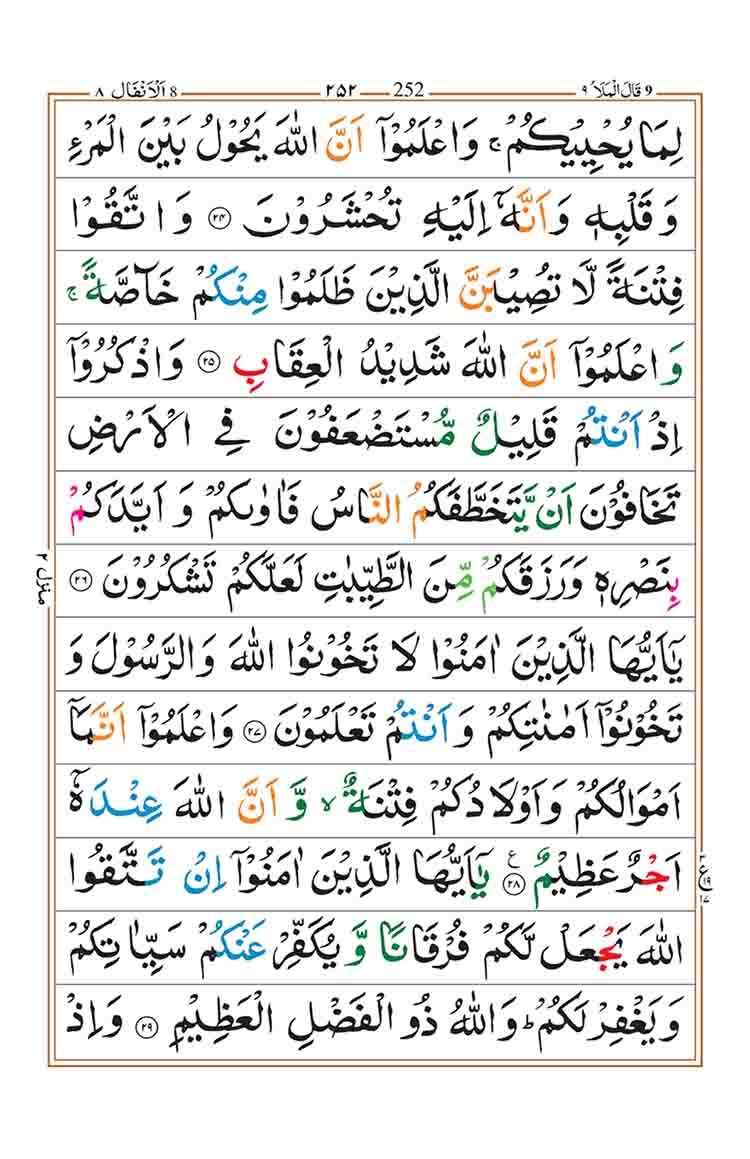 ٩ قَالَ الْمَلَاُ 9 252 ٢٥٢ 8 اَلْاَنْفَال ٨
لِمَا يُحْيِيْكُمْ ۚ وَاعْلَمُوْۤا اَنَّ اللّٰهَ يَحُوْلُ بَيْنَ الْمَرْءِ
وَ قَلْبِهٖ وَ اَنَّهٗۤ اِلَيْهِ تُحْشَرُوْنَ ۝۲۴ وَ اتَّقُوْا
فِتْنَةً لَّا تُصِيْبَنَّ الَّذِيْنَ ظَلَمُوْا مِنْكُمْ خَآصَّةً ۚ
وَ اعْلَمُوْۤا اَنَّ اللّٰهَ شَدِيْدُ الْعِقَابِ ۝۲۵ وَ اذْكُرُوْۤا
اِذْ اَنْتُمْ قَلِيْلٌ مُّسْتَضْعَفُوْنَ فِي الْاَرْضِ
تَخَافُوْنَ اَنْ يَّتَخَطَّفَكُمُ النَّاسُ فَاٰوٰىكُمْ وَ اَيَّدَكُمْ
بِنَصْرِهٖ وَ رَزَقَكُمْ مِّنَ الطَّيِّبٰتِ لَعَلَّكُمْ تَشْكُرُوْنَ ۝۲۶
منزل ۲
يٰۤاَيُّهَا الَّذِيْنَ اٰمَنُوْا لَا تَخُوْنُوا اللّٰهَ وَ الرَّسُوْلَ وَ
تَخُوْنُوْۤا اَمٰنٰتِكُمْ وَ اَنْتُمْ تَعْلَمُوْنَ ۝۲۷ وَ اعْلَمُوْۤا اَنَّمَاۤ
اَمْوَالُكُمْ وَ اَوْلَادُكُمْ فِتْنَةٌ ۙ وَّ اَنَّ اللّٰهَ عِنْدَهٗۤ
اَجْرٌ عَظِيْمٌ ۝۲۸ ع يٰۤاَيُّهَا الَّذِيْنَ اٰمَنُوْۤا اِنْ تَتَّقُوا
۳ ع ۱۹ ۱۷
اللّٰهَ يَجْعَلْ لَّكُمْ فُرْقَانًا وَّ يُكَفِّرْ عَنْكُمْ سَيِّاٰتِكُمْ
وَ يَغْفِرْ لَكُمْ ؕ وَ اللّٰهُ ذُو الْفَضْلِ الْعَظِيْمِ ۝۲۹ وَ اِذْ